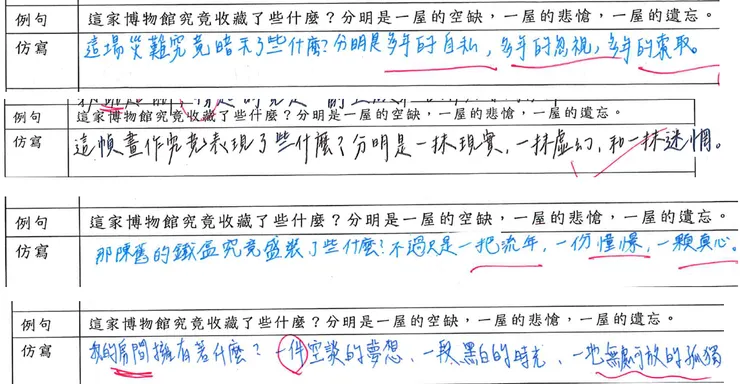 例句 這家博物館究竟收藏了些什麼？分明是一屋的空缺，一屋的悲愴，一屋的遺忘。
仿寫 這場災難究竟暗示了些什麼？分明是多年的自私，多年的忽視，多年的索取。
例句 這家博物館究竟收藏了些什麼？分明是一屋的空缺，一屋的悲愴，一屋的遺忘。
仿寫 這幀畫作究竟表現了些什麼？分明是一抹現實，一抹虛幻，和一抹迷惘。
例句 這家博物館究竟收藏了些什麼？分明是一屋的空缺，一屋的悲愴，一屋的遺忘。
仿寫 那陳舊的鐵盒究竟盛裝了些什麼？不過只是一把流年，一份憧憬，一顆真心。
例句 這家博物館究竟收藏了些什麼？分明是一屋的空缺，一屋的悲愴，一屋的遺忘。
仿寫 我的房間擁有著什麼？一件空談的夢想、一段黑白的時光、一地無處可放的孤獨